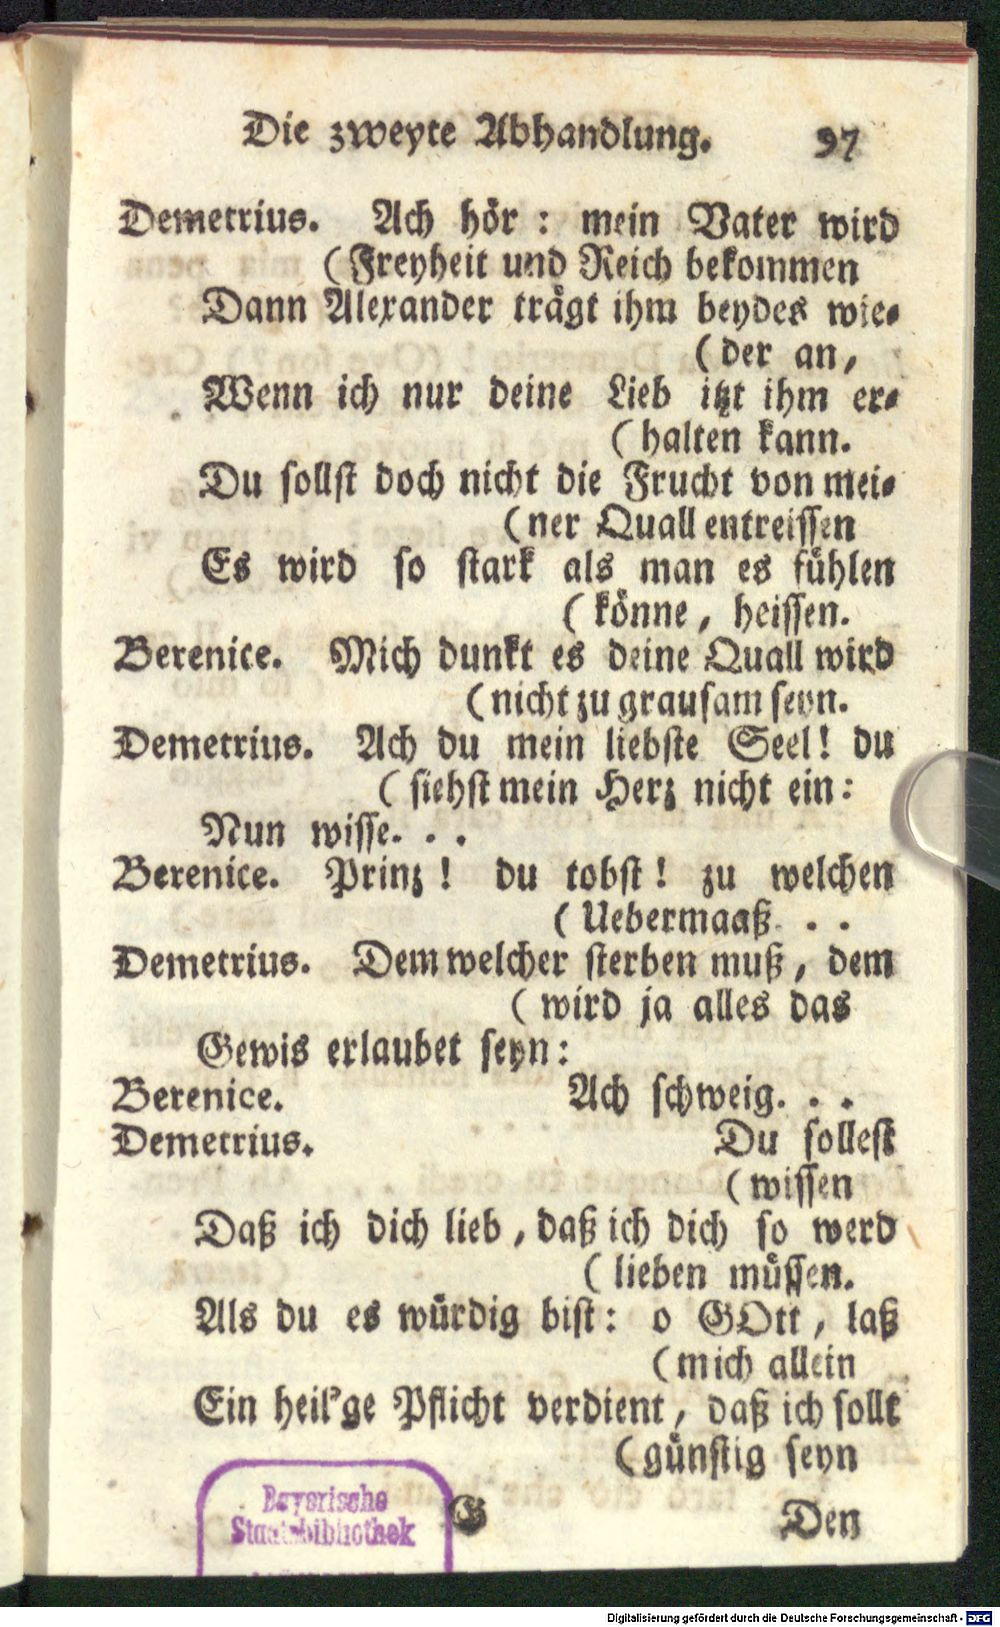 Die zweyte Abhandlung. 97
Demetrius. Ach hör : mein Vater wird
(Freyheit und Reich bekommen
Dann Alexander trägt ihm beydes wie-
(der an,
Wenn ich nur deine Lieb itzt ihm er-
(halten kann.
Du sollst doch nicht die Frucht von mei-
(ner Quall entreissen
Es wird so stark als man es fühlen
(könne, heissen.
Berenice. Mich dunkt es deine Quall wird
(nicht zu grausam seyn.
Demetrius. Ach du mein liebste Seel! du
(siehst mein Herz nicht ein:
Nun wisse. . .
Berenice. Prinz ! du tobst ! zu welchen
(Uebermaaß. . .
Demetrius. Dem welcher sterben muß, dem
(wird ja alles das
Gewis erlaubet seyn:
Berenice. Ach schweig. . .
Demetrius. Du sollest
(wissen
Daß ich dich lieb, daß ich dich so werd
(lieben müssen.
Als du es würdig bist: o GOtt, laß
(mich allein
Ein heil'ge Pflicht verdient, daß ich sollt
(günstig seyn
G Den
Bayerische
Staatsbibliothek
Digitalisierung gefördert durch die Deutsche Forschungsgemeinschaft - DFG